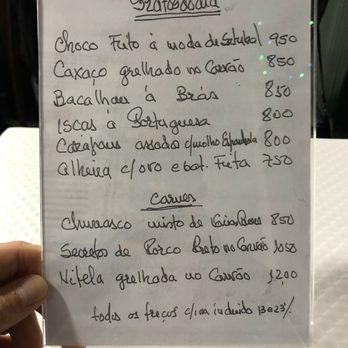 Choco Frito à moda de Setubal 950
Caxaço grelhado no Carvão 850
Bacalhau à Brás 850
Iscas à Portuguesa 800
Carapaus assados c/molho Espanhola 800
Alheira c/ovo e bat. Frita 750
Carnes
Churrasco misto de 850
Secretos de Porco Preto no Carvão 1050
Vitela grelhada no Carvão 1200
todos os preços c/iva incluido 13 e 23%